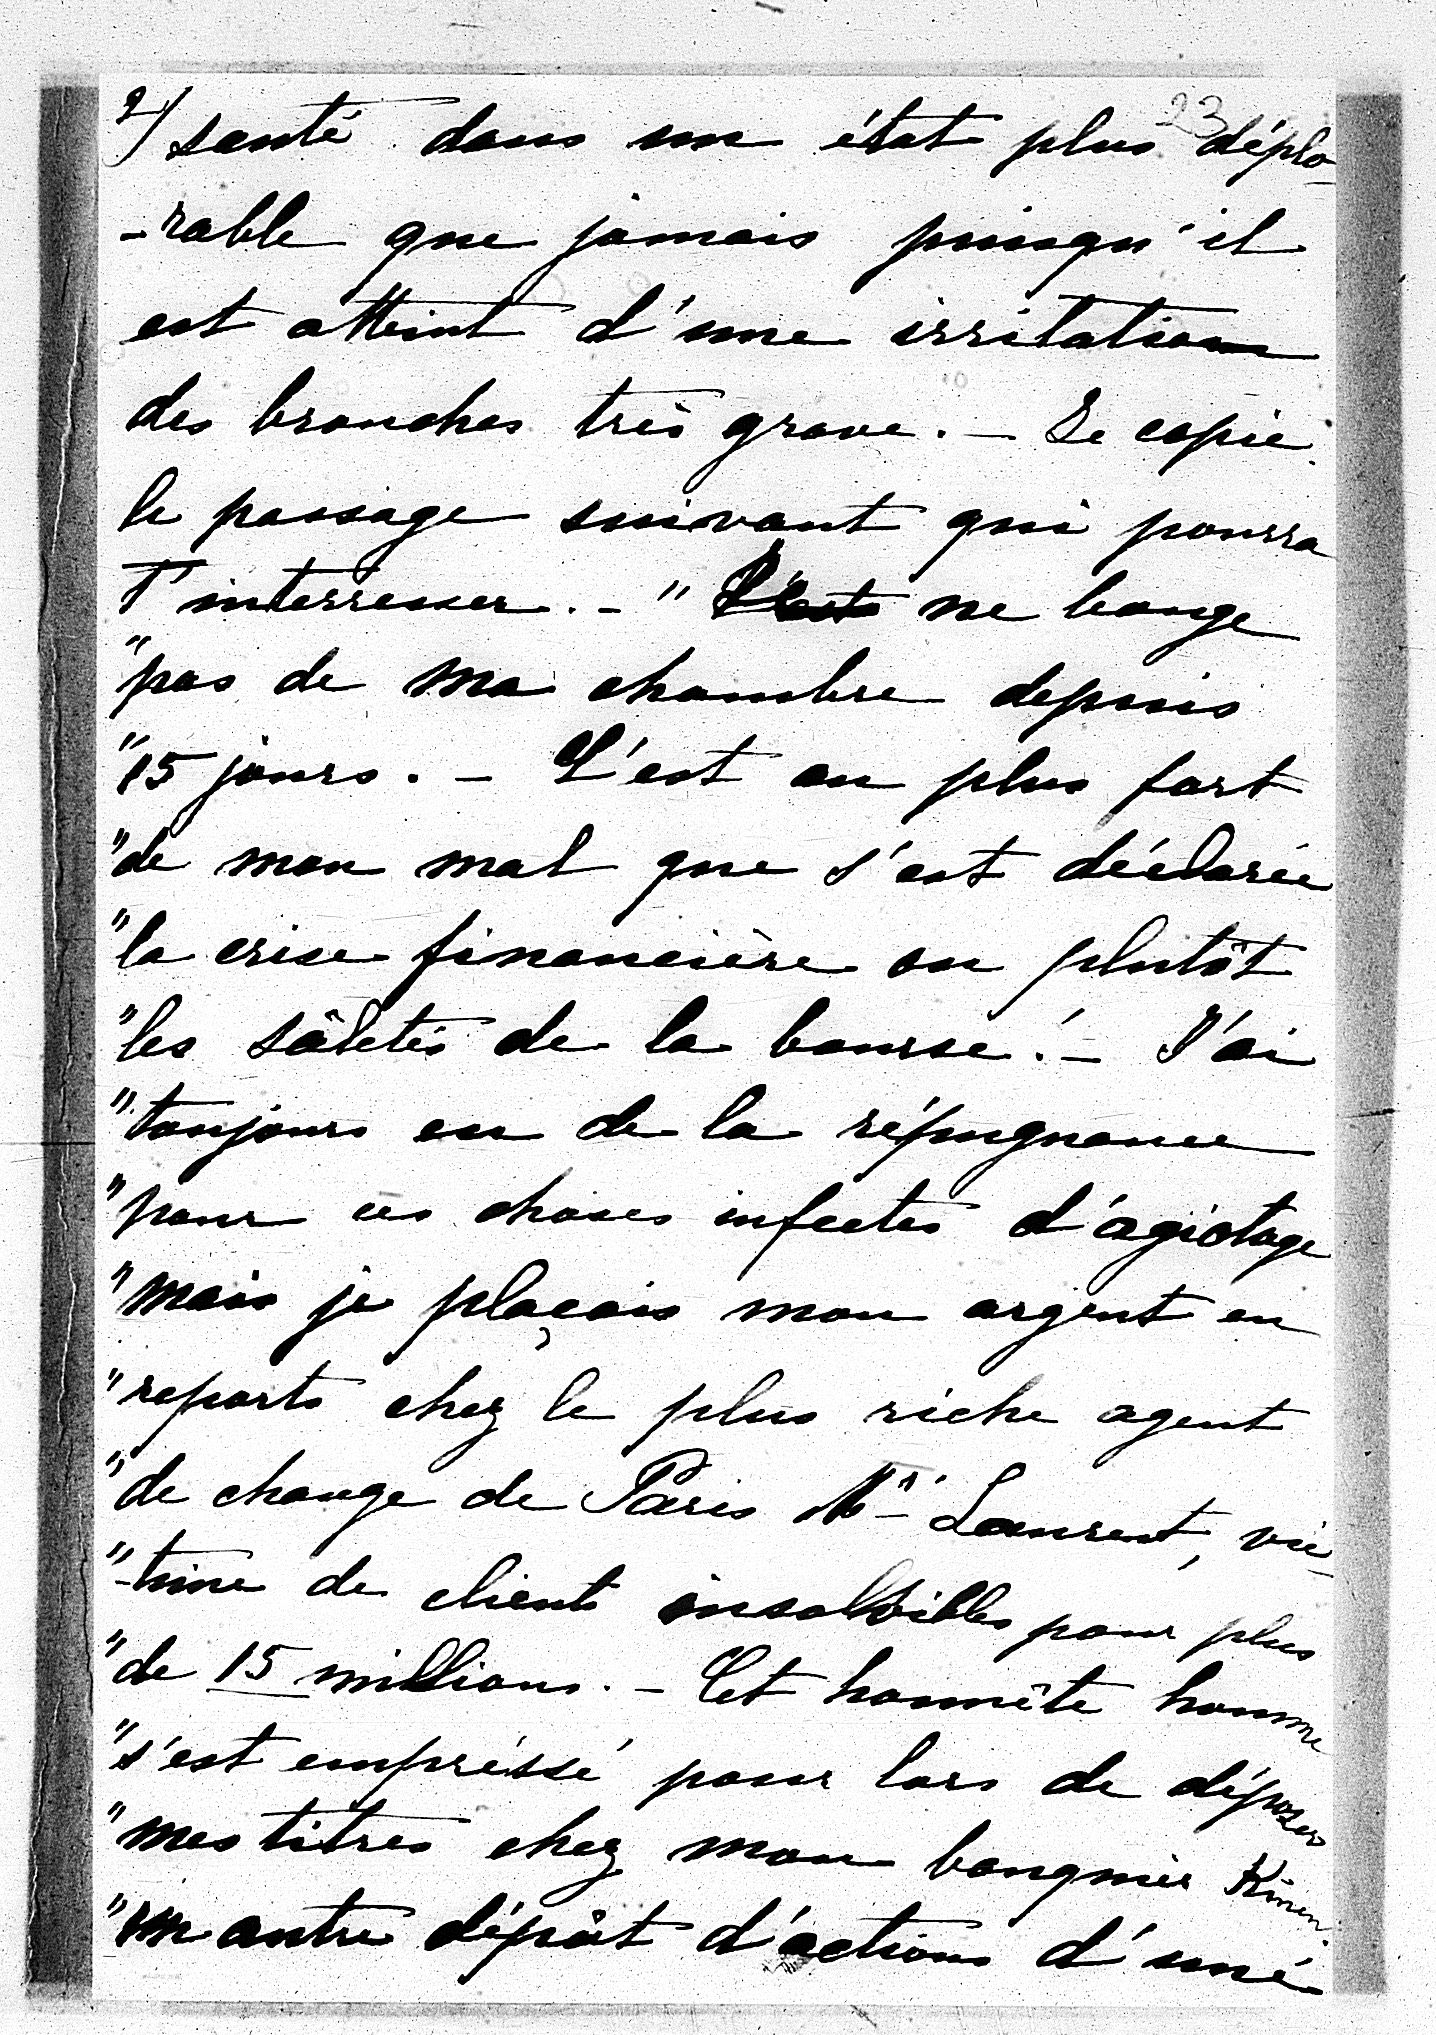 2) santé dans un état plus déplo-
23
-rable que jamais puisqu'il
est atteint d'une irritation
des bronches très grave. – Je copie
le passage suivant qui pourra
t'interresser. – " ne bouge
"pas de ma chambre depuis
"15 jours. – C'est au plus fort
"de mon mal que s'est déclarée
"la crise financière ou plutôt
"les sâletés de la bourse! – J'ai
"toujours eu de la répugnance
"pour ces choses infectes d'agiotage
"mais je plaçais mon argent en
"reports chez le plus riche agent
"de change de Paris Mr Laurent, vic-
"-time de clients insolvibles pour plus
"de 15 millions. – Cet honnête homme
"s'est empréssé pour lors de déposer
"mes titres chez mon banquier
"un autre dépôt d'actions d'une